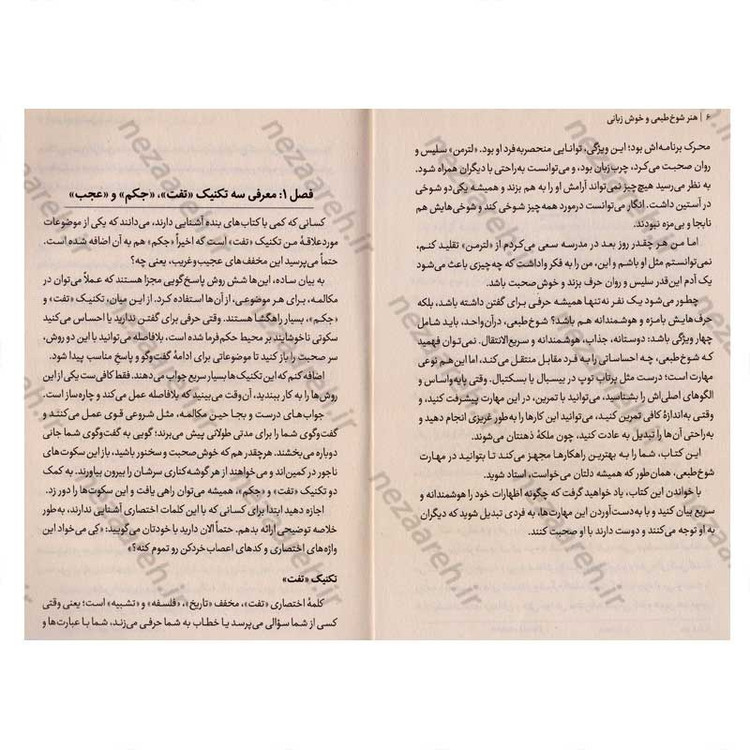 ۶ | هنر شوخ‌طبعی و خوش زبانی
محرک برنامه‌اش بود؛ این ویژگی، توانایی منحصربه‌فرد او بود. «لترمن» سلیس و
روان صحبت می‌کرد، چرب‌زبان بود، و می‌توانست به‌راحتی با دیگران همراه شود.
به نظر می‌رسید هیچ‌چیز نمی‌تواند آرامش او را به هم بزند و همیشه یکی‌دو شوخی
در آستین داشت. انگار می‌توانست درمورد همه‌چیز شوخی کند و شوخی‌هایش هم
نابجا و بی‌مزه نبودند.
اما من هر چقدر روز بعد در مدرسه سعی می‌کردم از «لترمن» تقلید کنم،
نمی‌توانستم مثل او باشم و این، من را به فکر واداشت که چه‌چیزی باعث می‌شود
یک آدم این‌قدر سلیس و روان حرف بزند و خوش‌صحبت باشد.
چطور می‌شود یک نفر نه‌تنها همیشه حرفی برای گفتن داشته باشد، بلکه
حرف‌هایش بامزه و هوشمندانه هم باشد؟ شوخ‌طبعی، درآن‌واحد، باید شامل
چهار ویژگی باشد: دوستانه، جذاب، هوشمندانه و سریع‌الانتقال. نمی‌توان فهمید
که شوخ‌طبعی، چه احساساتی را به فرد مقابل منتقل می‌کند، اما این‌هم نوعی
مهارت است؛ درست مثل پرتاب توپ در بیسبال یا بسکتبال. وقتی پایه‌واساس و
الگوهای اصلی‌اش را بشناسید، می‌توانید با تمرین، در این مهارت پیشرفت کنید، و
وقتی به‌اندازهٔ کافی تمرین کنید، می‌توانید این کارها را به‌طور غریزی انجام دهید و
به‌راحتی آن‌ها را تبدیل به عادت کنید، چون ملکهٔ ذهنتان می‌شوند.
این کتاب، شما را به بهترین راهکارها مجهز می‌کند تا بتوانید در مهارت
شوخ‌طبعی، همان‌طور که همیشه دلتان می‌خواست، استاد شوید.
با خواندن این کتاب، یاد خواهید گرفت که چگونه اظهارات خود را هوشمندانه و
سریع بیان کنید و با به‌دست‌آوردن این مهارت‌ها، به فردی تبدیل شوید که دیگران
به او توجه می‌کنند و دوست دارند با او صحبت کنند.
فصل ۱: معرفی سه تکنیک «تفت»، «جکم» و «عجب»
کسانی که کمی با کتاب‌های بنده آشنایی دارند، می‌دانند که یکی از موضوعات
موردعلاقهٔ من تکنیک «تفت» است که اخیراً «جکم» هم به آن اضافه شده است.
حتماً می‌پرسید این مخفف‌های عجیب‌وغریب، یعنی چه؟
به بیان ساده، این‌ها شش روش پاسخ‌گویی مجزا هستند که عملاً می‌توان در
مکالمه، برای هر موضوعی، از آن‌ها استفاده کرد. از این میان، تکنیک «تفت» و
«جکم»، بسیار راهگشا هستند. وقتی حرفی برای گفتن ندارید یا احساس می‌کنید
سکوتی ناخوشایند بر محیط حکم‌فرما شده است، بلافاصله می‌توانید با این دو روش،
سر صحبت را باز کنید تا موضوعاتی برای ادامهٔ گفت‌وگو و پاسخ مناسب پیدا شود.
اضافه کنم که این تکنیک‌ها بسیار سریع جواب می‌دهند. فقط کافی‌ست یکی از این
روش‌ها را به کار ببندید، آن‌وقت می‌بینید که بلافاصله عمل می‌کند و چاره‌ساز است.
جواب‌های درست و بجا حین مکالمه، مثل شروعی قوی عمل می‌کنند و
گفت‌وگوی شما را برای مدتی طولانی پیش می‌برند؛ گویی به گفت‌وگوی شما جانی
دوباره می‌بخشند. هرچقدر هم که خوش‌صحبت و سخنور باشید، باز این سکوت‌های
ناجور در کمین‌اند و می‌خواهند از هر گوشه‌کناری سرشان را بیرون بیاورند. به کمک
دو تکنیک «تفت» و «جکم»، همیشه می‌توان راهی یافت و این سکوت‌ها را دور زد.
اجازه دهید ابتدا برای کسانی که با این کلمات اختصاری آشنایی ندارند، به‌طور
خلاصه توضیحی ارائه بدهم. حتماً الان دارید با خودتان می‌گویید: «کِی می‌خواد این
واژه‌های اختصاری و کدهای اعصاب‌خردکن رو تموم کنه؟»
تکنیک «تفت»
کلمهٔ اختصاری «تفت»، مخفف «تاریخ»، «فلسفه» و «تشبیه» است؛ یعنی وقتی
کسی از شما سؤالی می‌پرسد یا خطاب به شما حرفی می‌زند، شما با عبارت‌ها و
nezaareh.ir
nezaareh.ir
nezaareh.ir
nezaareh.ir
nezaareh.ir
nezaareh.ir